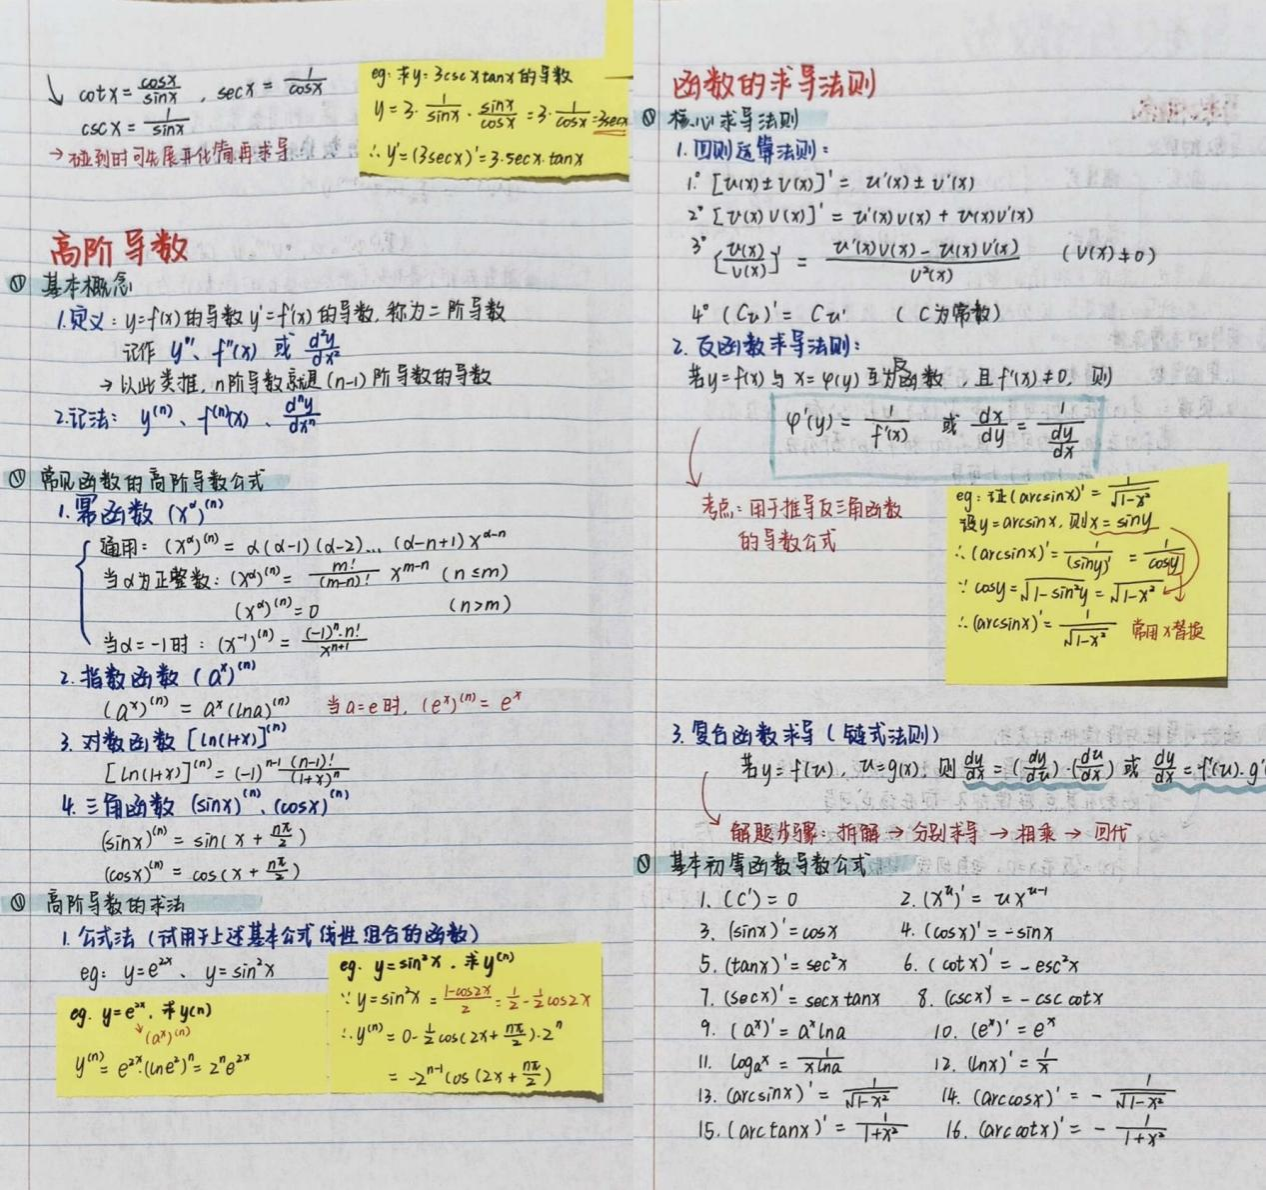 ↓ cotx = cosx/sinx , secx = 1/cosx
cscx = 1/sinx
→ 碰到时可先展开化简再求导
eg: 求y=3cscxtanx的导数
y = 3·1/sinx·sinx/cosx = 3·1/cosx = 3secx
∴ y' = (3secx)' = 3·secx·tanx
高阶导数
① 基本概念
1.定义：y=f(x)的导数y'=f'(x)的导数,称为二阶导数
记作 y''、f''(x) 或 d²y/dx²
→ 以此类推, n阶导数就是(n-1)阶导数的导数
2.记法： y⁽ⁿ⁾、f⁽ⁿ⁾(x)、dⁿy/dxⁿ
① 常见函数的高阶导数公式
1.幂函数 (x^α)⁽ⁿ⁾
通用: (x^α)⁽ⁿ⁾ = α(α-1)(α-2)…(α-n+1)x^(α-n)
当α为正整数: (x^α)⁽ⁿ⁾ = m!/(m-n)! x^(m-n) (n≤m)
(x^α)⁽ⁿ⁾ = 0 (n>m)
当α=-1时: (x⁻¹)⁽ⁿ⁾ = (-1)ⁿ·n!/xⁿ⁺¹
2.指数函数 (aˣ)⁽ⁿ⁾
(aˣ)⁽ⁿ⁾ = aˣ(lna)⁽ⁿ⁾ 当a=e时, (eˣ)⁽ⁿ⁾ = eˣ
3.对数函数 [ln(1+x)]⁽ⁿ⁾
[ln(1+x)]⁽ⁿ⁾ = (-1)ⁿ⁻¹ (n-1)!/(1+x)ⁿ
4.三角函数 (sinx)⁽ⁿ⁾、(cosx)⁽ⁿ⁾
(sinx)⁽ⁿ⁾ = sin(x + nπ/2)
(cosx)⁽ⁿ⁾ = cos(x + nπ/2)
① 高阶导数的求法
1.公式法 (试用于上述基本公式线性组合的函数)
eg: y=e²ˣ、y=sin²x
eg. y=e²ˣ, 求y(n)
(aˣ)⁽ⁿ⁾
y⁽ⁿ⁾ = e²ˣ·(lne²)ⁿ = 2ⁿe²ˣ
eg. y=sin²x. 求y⁽ⁿ⁾
∵ y=sin²x = (1-cos2x)/2 = 1/2 - 1/2cos2x
∴ y⁽ⁿ⁾ = 0 - 1/2cos(2x + nπ/2)·2ⁿ
= -2ⁿ⁻¹cos(2x + nπ/2)
函数的求导法则
① 核心求导法则
1.四则运算法则:
1.° [u(x)±v(x)]' = u'(x)±v'(x)
2° [u(x)v(x)]' = u'(x)v(x) + u(x)v'(x)
3° [u(x)/v(x)]' = (u'(x)v(x) - u(x)v'(x))/v²(x) (v(x)≠0)
4° (Cu)' = Cu' (C为常数)
2.反函数求导法则:
若y=f(x)与x=φ(y)互为反函数, 且f'(x)≠0, 则
φ'(y) = 1/f'(x) 或 dx/dy = 1/(dy/dx)
考点: 用于推导反三角函数
的导数公式
eg: 证(arcsinx)' = 1/√(1-x²)
设y=arcsinx, 则x=siny
∴ (arcsinx)' = 1/(siny)' = 1/cosy
∵ cosy = √(1-sin²y) = √(1-x²)
∴ (arcsinx)' = 1/√(1-x²) 常用x替换
3.复合函数求导(链式法则)
若y=f(u), u=g(x), 则 dy/dx = (dy/du)·(du/dx) 或 dy/dx = f'(u)·g'(
解题步骤: 拆解 → 分别求导 → 相乘 → 回代
① 基本初等函数导数公式
1. (C') = 0 2. (xᵘ)' = uxᵘ⁻¹
3. (sinx)' = cosx 4. (cosx)' = -sinx
5. (tanx)' = sec²x 6. (cotx)' = -esc²x
7. (secx)' = secxtanx 8. (cscx)' = -csccotx
9. (aˣ)' = aˣlna 10. (eˣ)' = eˣ
11. logaˣ = 1/xlna 12. (lnx)' = 1/x
13. (arcsinx)' = 1/√(1-x²) 14. (arccosx)' = - 1/√(1-x²)
15. (arctanx)' = 1/(1+x²) 16. (arccotx)' = - 1/(1+x²)